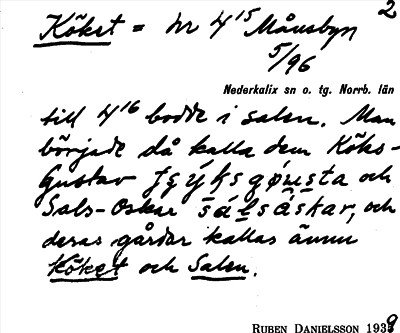 2
Köket = nr 4¹⁵ Månsbyn
5/96
Nederkalix sn o. tg. Norrb. län
till 4¹⁶ bodde i salen. Man
började då kalla dem Köks-
Gustav och
Sals-Oskar, och
deras gårdar kallas ännu
Köket och Salen.
RUBEN DANIELSSON 1939